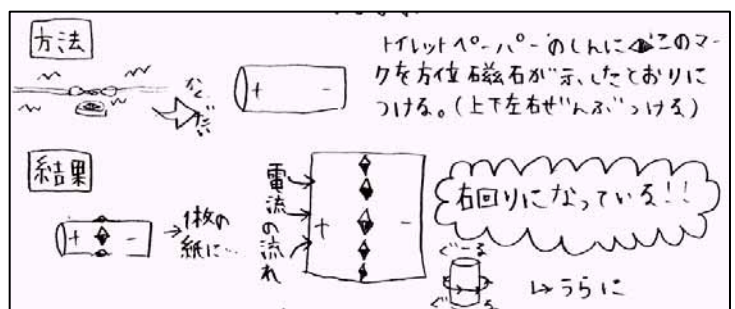 方法
トイレットペーパーのしんに◆このマー
クを方位磁石が示したとおりに
つける。(上下左右ぜんぶつける)
+ -
結果
+ -
→1枚の
紙に…
電流の流れ
+ -
右回りになっている!!
ぐーる
↳うらに